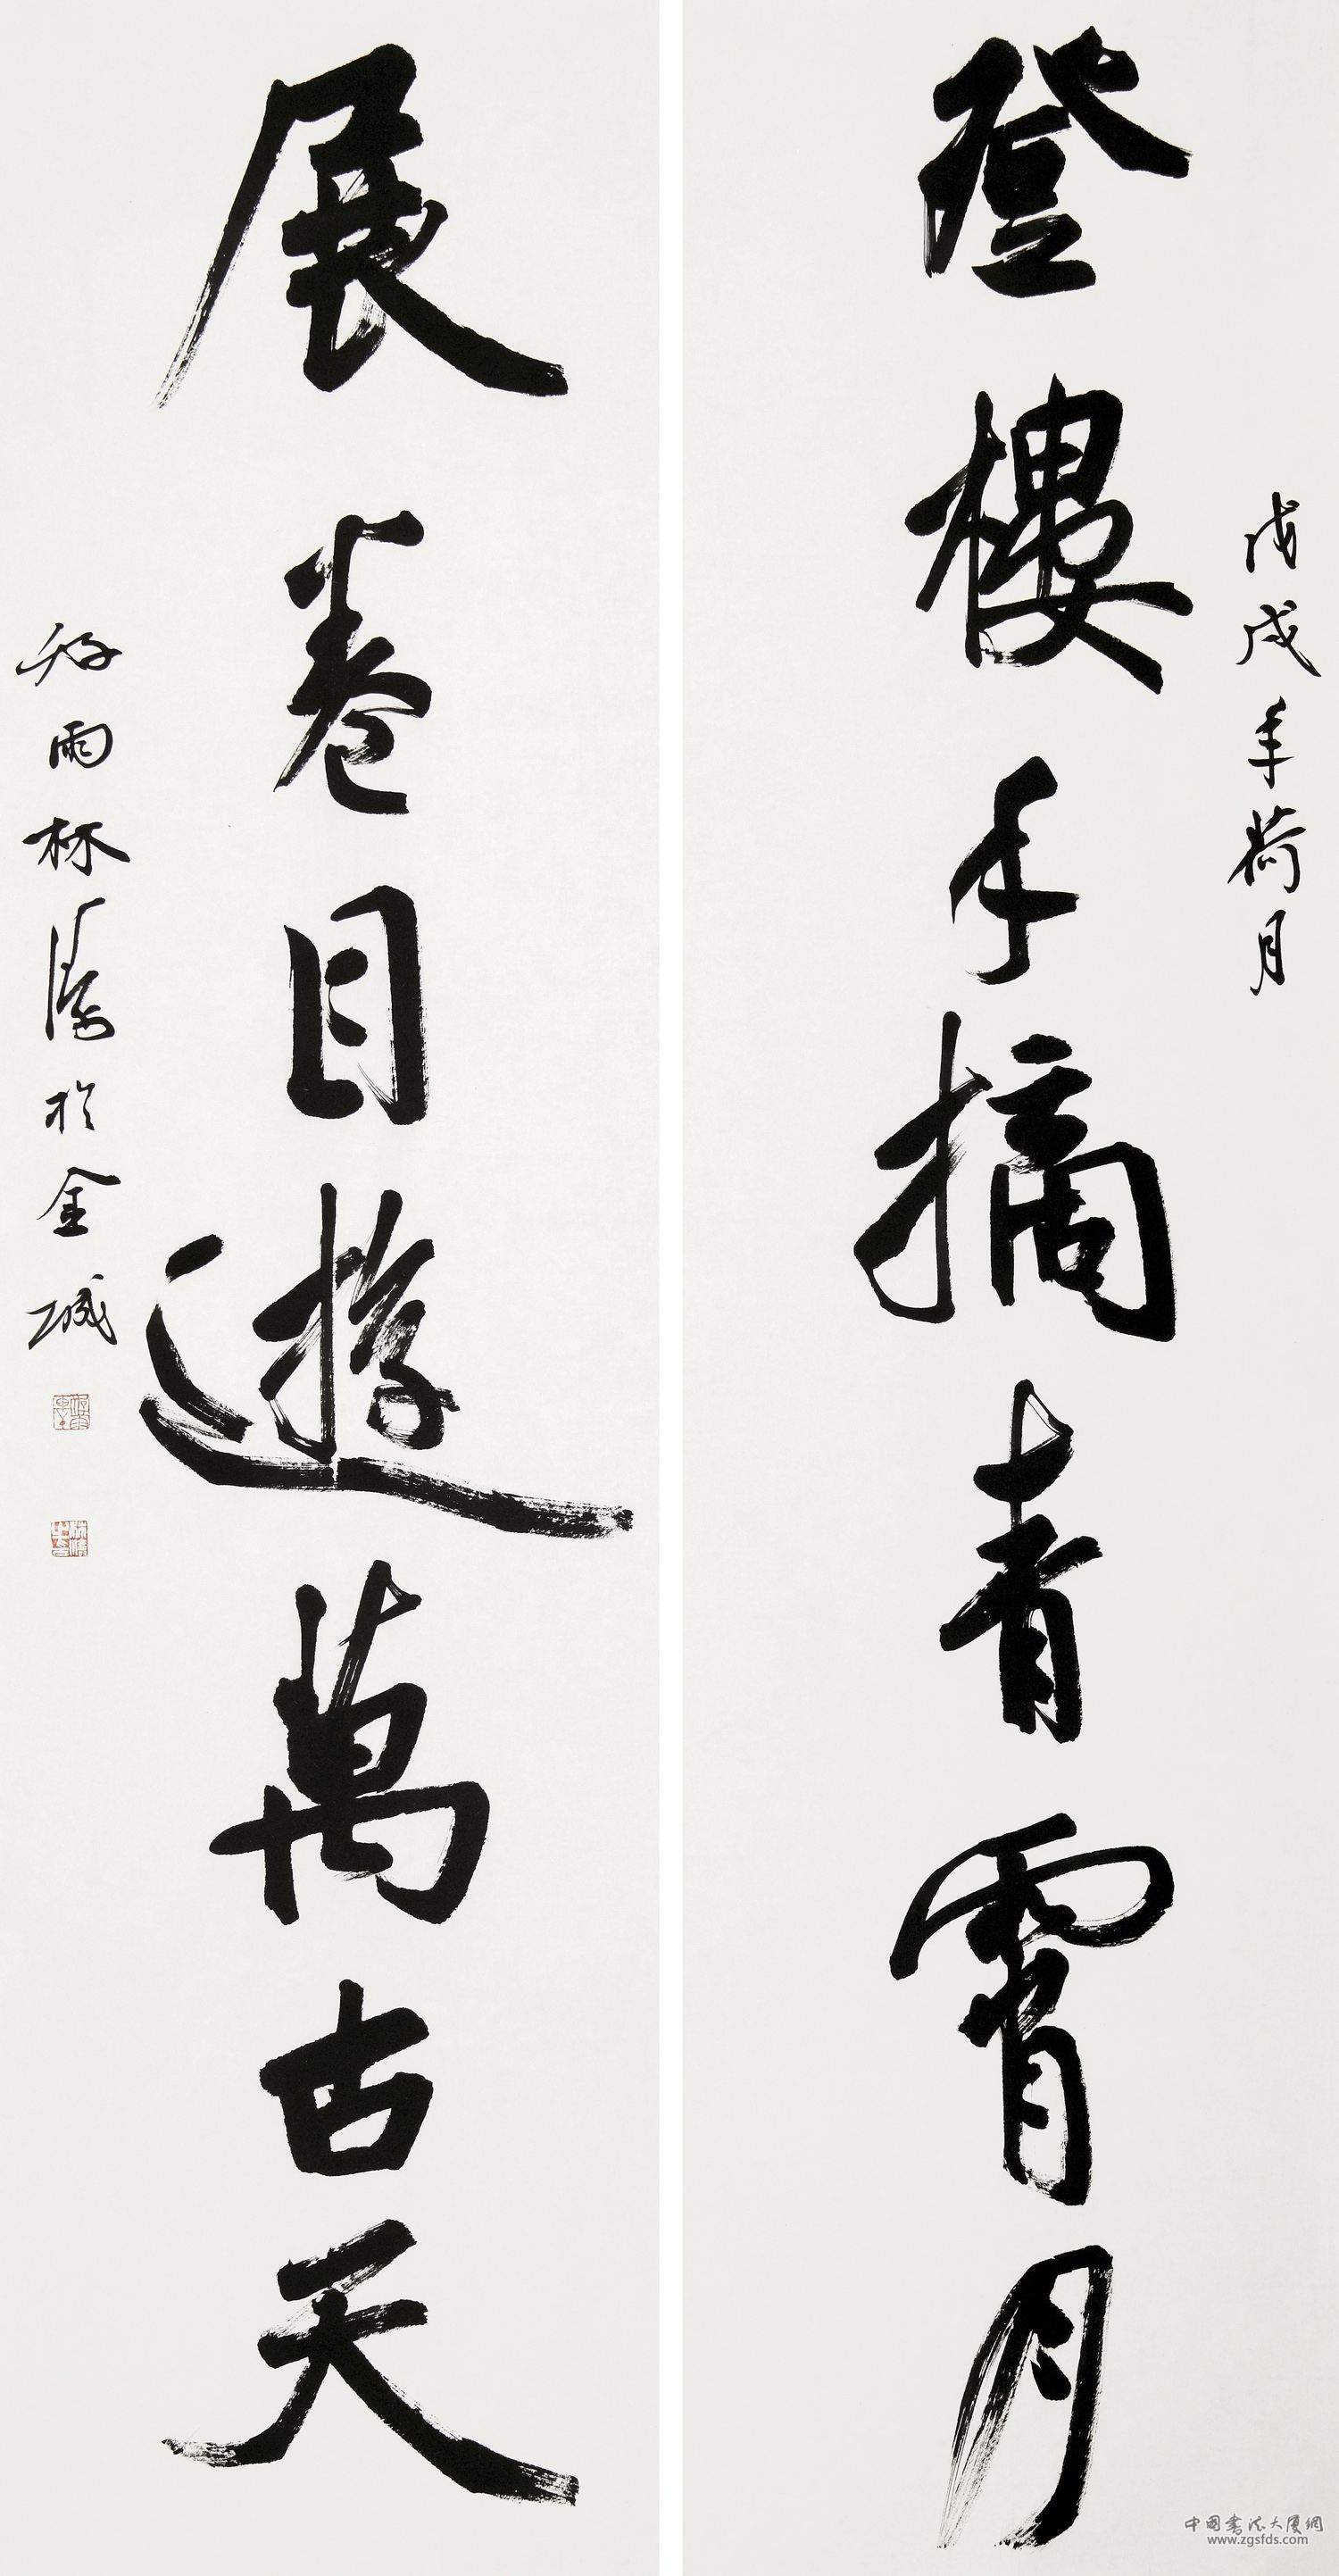 戊戌年荷月
登樓手摘青霄月
展卷目遊萬古天
雨林濤於金城
中國書法大廈網
www.zgsfds.com